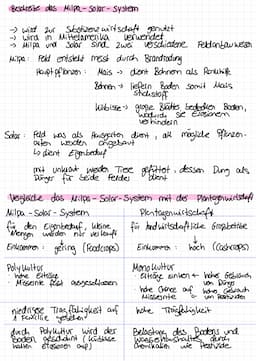 Beschreibe das Milpa-Solar-System
→ wird zur Subsistenzwirtschaft genutzt
→ wird in Mittelamerika verwendet
→ Milpa und Solar sind zwei verschiedene Feldanbauweisen
Milpa: Feld entsteht meist durch Brandrodung
Hauptpflanzen: Mais → dient Bohnen als Rankhilfe
Bohnen → liefern Boden somit Mais
Stickstoff
Kürbisse → große Blätter bedecken Boden,
wodurch sie Erosionen
verhindern
Solar: Feld was als Hausgarten dient, all mögliche Pflanzen-
arten werden angebaut
↳ dient Eigenbedarf
mit unkraut werden Tiere gefüttert, dessen Dung als
Dünger für beide Felder dient
Vergleiche das Milpa-Solar-System mit der Plantagenwirtschaft
Milpa-Solar-System
Plantagenwirtschaft
für den Eigenbedarf, kleine
Mengen werden nur verkauft
für landwirtschaftliche Großbetriebe
Einkommen: gering (Foodcrops)
Einkommen: hoch (Cashcrops)
Polykultur
- hohe Erträge
- Missernte fast ausgeschlossen
Monokultur
- Erträge sinken ← hoher Gebrauch
von Dünger
- hohe Chance auf ← hoher Gebrauch
Missernte von Pestiziden
niedrige Tragfähigkeit auf
1 Familie
hohe Tragfähigkeit
durch Polykultur wird der
Boden geschützt (Kürbisse
halten Erosionen auf)
Belastung des Bodens und
Wasserhaushaltes durch
Chemikalien wie Pestizide